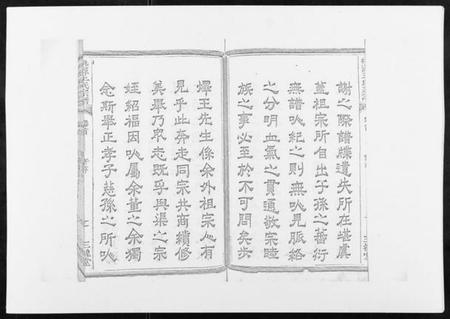 謝之際譜牒遺失所在堪虞
蓋祖宗所自出子孫之蕃衍
無譜以紀之則無以見脈絡
之分明血氣之貫通敬宗睦
族之事必至於不可問矣步
墀王先生係余外祖宗人有
見乎此奔走同宗共商續修
美舉乃衆志既孚與渠之宗
姪紹福因以屬余董之余獨
念斯舉正孝子慈孫之所以
三槐堂
三槐堂